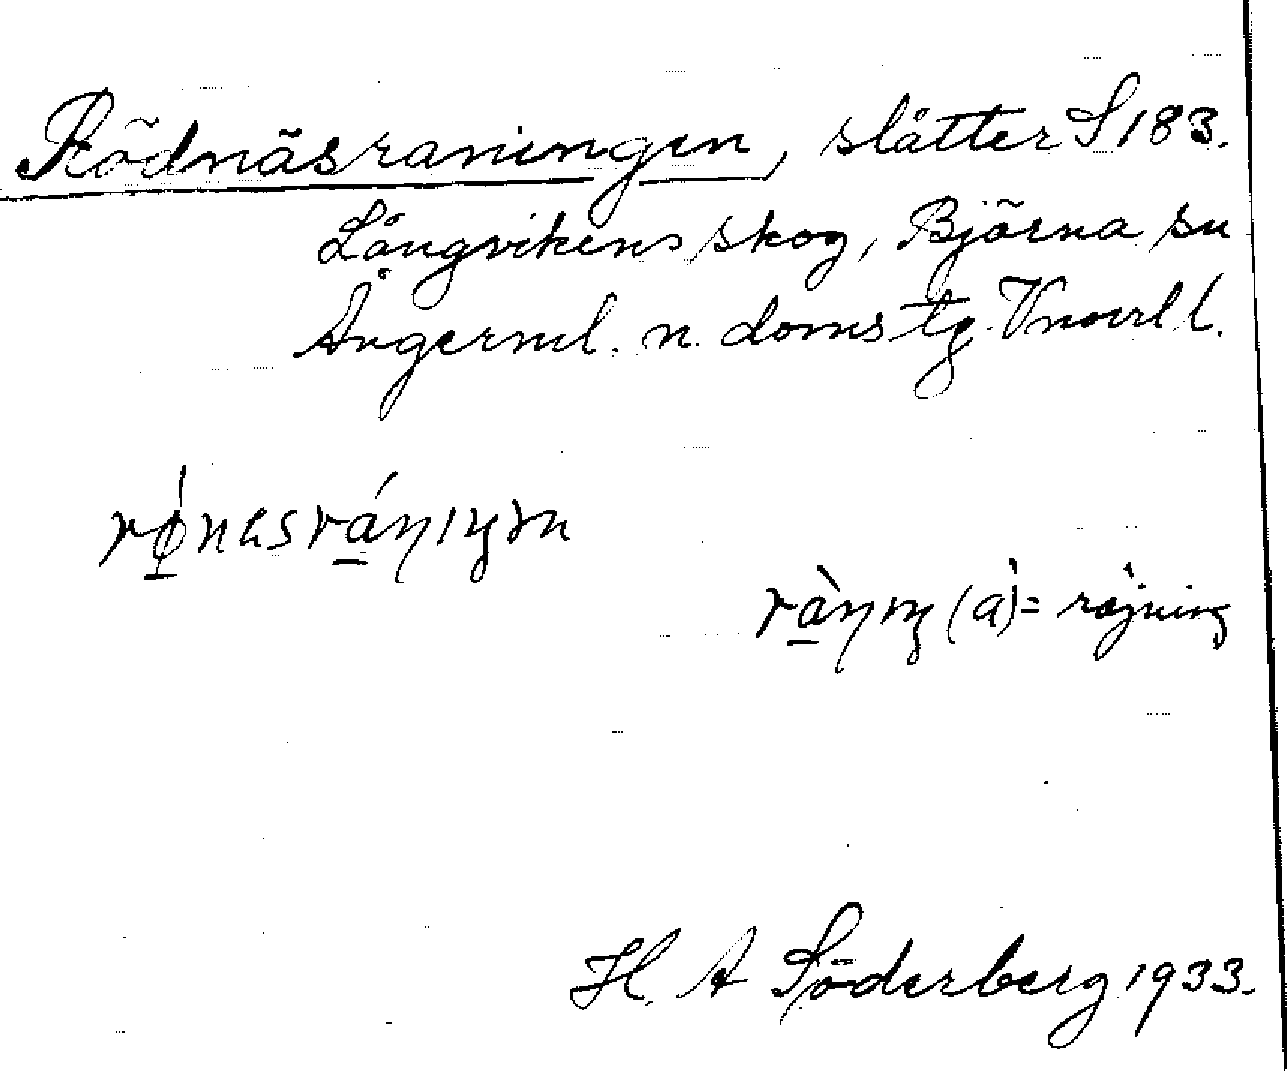 Rödnäsraningen, slåtter S 183.
Långvikens skog, Björna sn
Ångerml. n. doms tg. Vnorrl l.
rǿ̱nasrá̱ŋıŋən
rà̱ŋıŋ (à) = röjning
H. A Söderberg 1933.